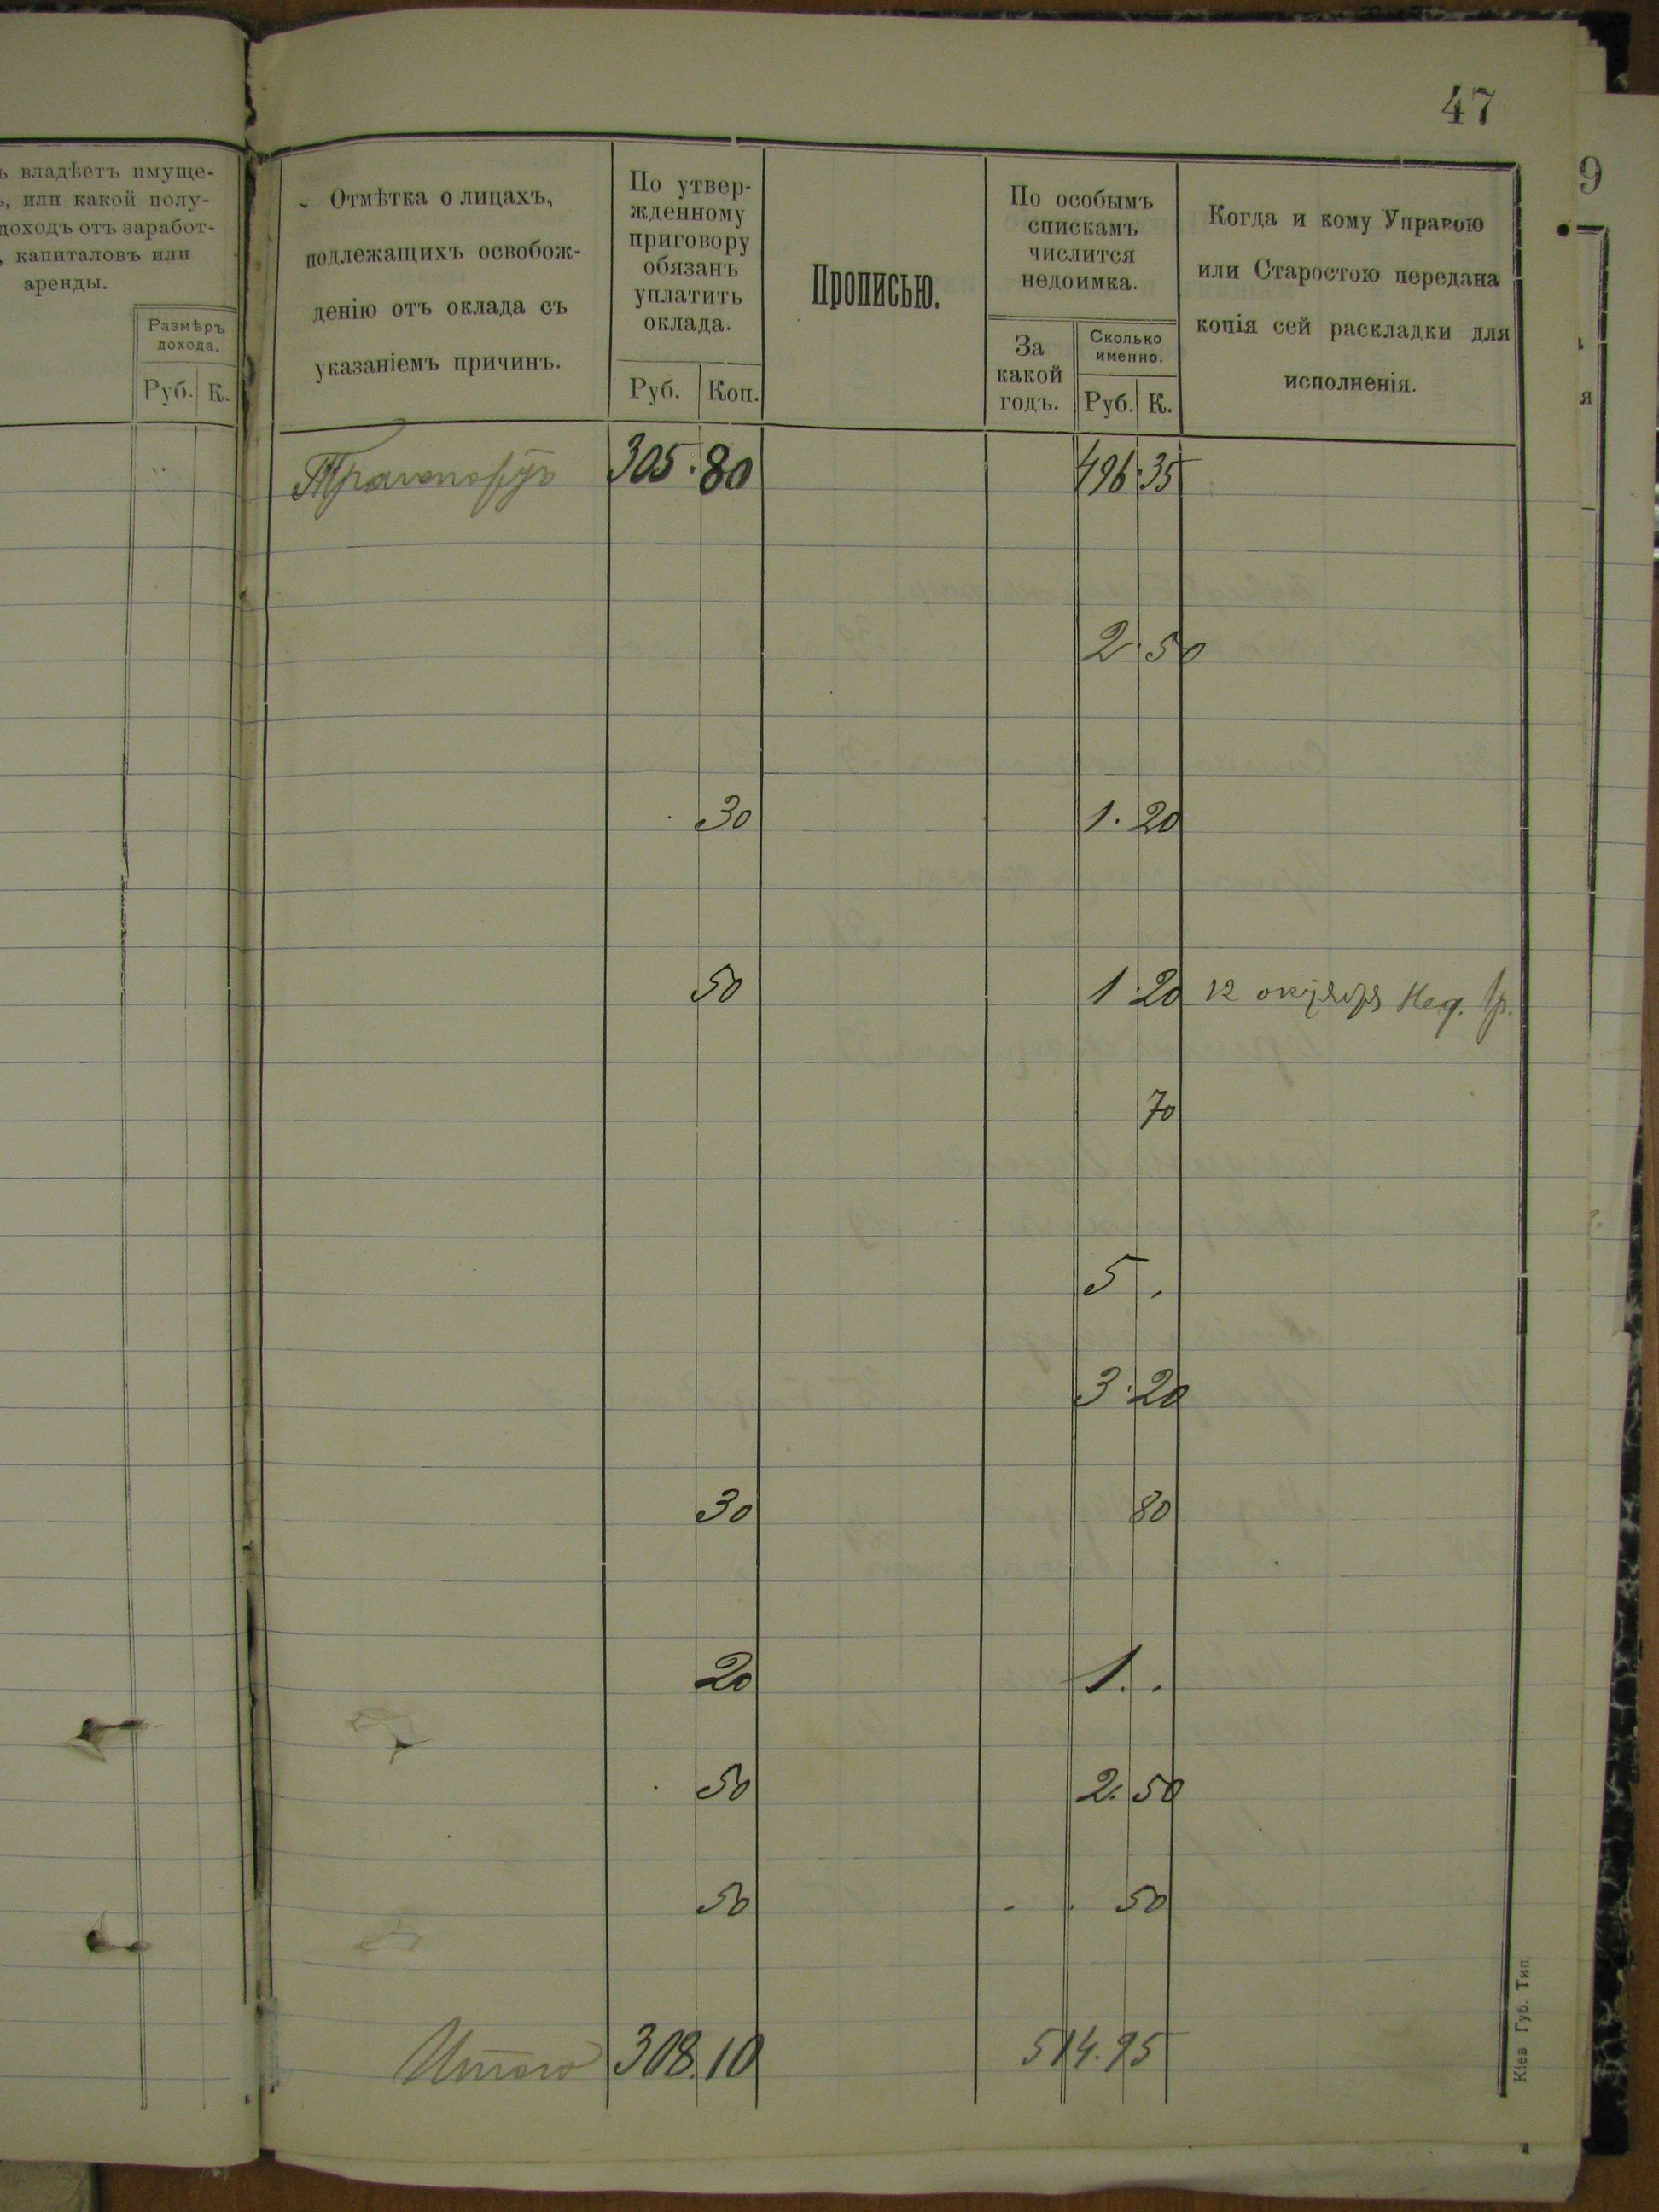 47
9
ъ владѣетъ имуще-
ъ, или какой полу-
доходъ отъ заработ-
, капиталовъ или
аренды.
Размѣръ
дохода.
Руб. К.
Отмѣтка о лицахъ,
подлежащихъ освобож-
денію отъ оклада съ
указаніемъ причинъ.
По утвер-
жденному
приговору
обязанъ
уплатить
оклада.
Руб. Коп.
Прописью.
По особымъ
спискамъ
числится
недоимка.
За
какой
годъ.
Сколько
именно.
Руб. К.
Когда и кому Управою
или Старостою передана
копія сей раскладки для
исполненія.
я
Транспортъ 305.80 496.35
2.50
30 1.20
50 1.20 12 октября
70
5 .
3.20
30 80
20 1. .
50 2.50
50 50
Итого 308.10 514.95
Кіев Губ. Тип.